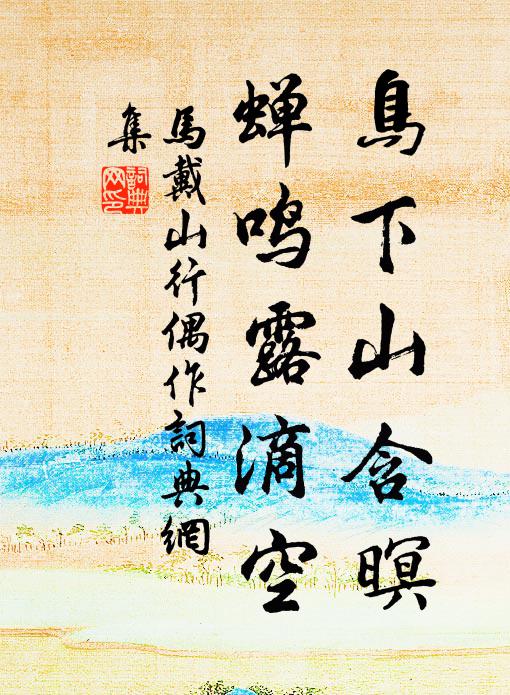 鳥下山含暝
蝉鸣露滴空
馬戴山行偶作詞典網
集
詞典
网印